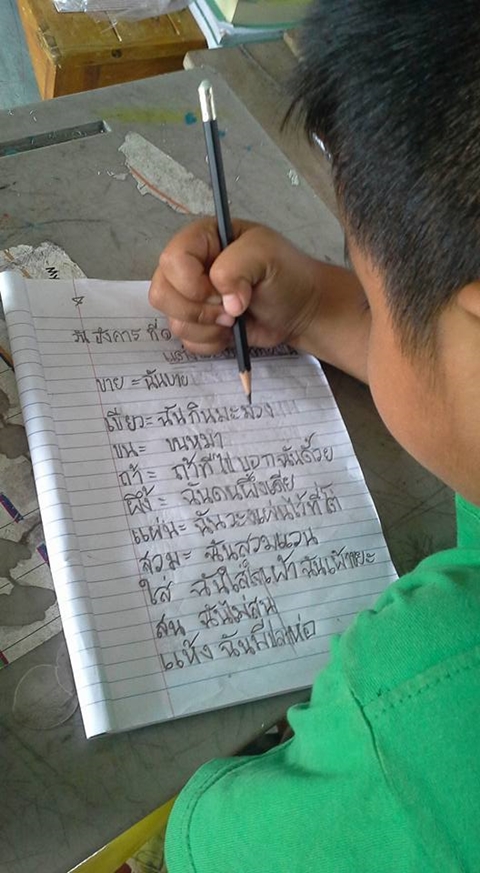 วัน อังคาร ที่
แต่ง
ขาย = ฉันขาย
เขียว = ฉันกินมะม่วง
ขน = ขนหมา
ถ้า = ถ้าที่ไปบอกฉันด้วย
ผึ้ง = ฉันดนผึ้งเตีย
แผ่น = ฉันวะงแผ่นไว้ที่โต้
สวม = ฉันสวมแวน
ใส่ ฉันใส่ ฉัน
สน ฉันไม่สน
แห้ง ฉัน